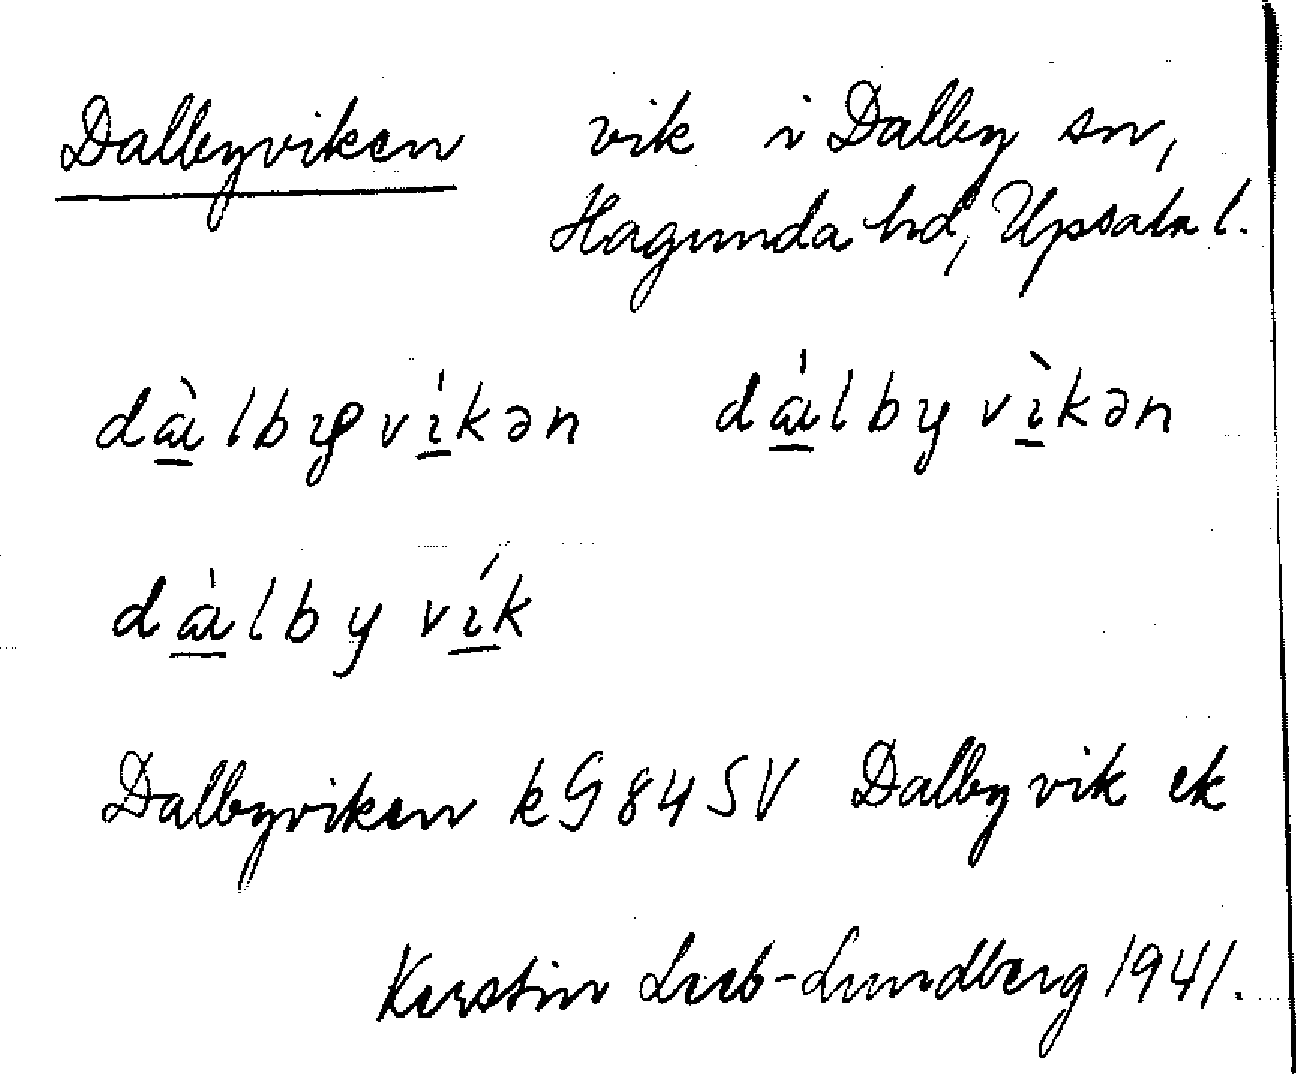 Dalbyviken vik i Dalby sn,
Hagunda hd, Upsala l.
dàlbyvíkən dálbyvìkən
dàlbyvík
Dalbyviken kG 84 SV Dalbyvik ek
Kerstin Leeb-Lundberg 1941.